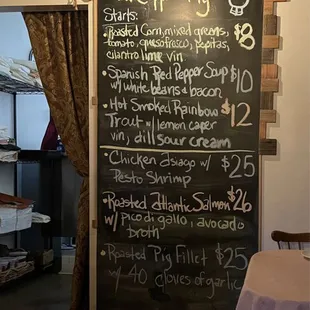 Starts:
Roasted Corn, mixed greens, $8
tomato, queso fresco, pepitas,
cilantro lime vin.
Spanish Red Pepper Soup $10
w/ white beans & bacon
Hot Smoked Rainbow $12
Trout w/ lemon caper
vin, dill sour cream
Chicken asiago w/ $25
Pesto Shrimp
Roasted Atlantic Salmon $26
w/ pico di gallo, avocado
broth
Roasted Pig Fillet $25
w/ 40 cloves of garlic